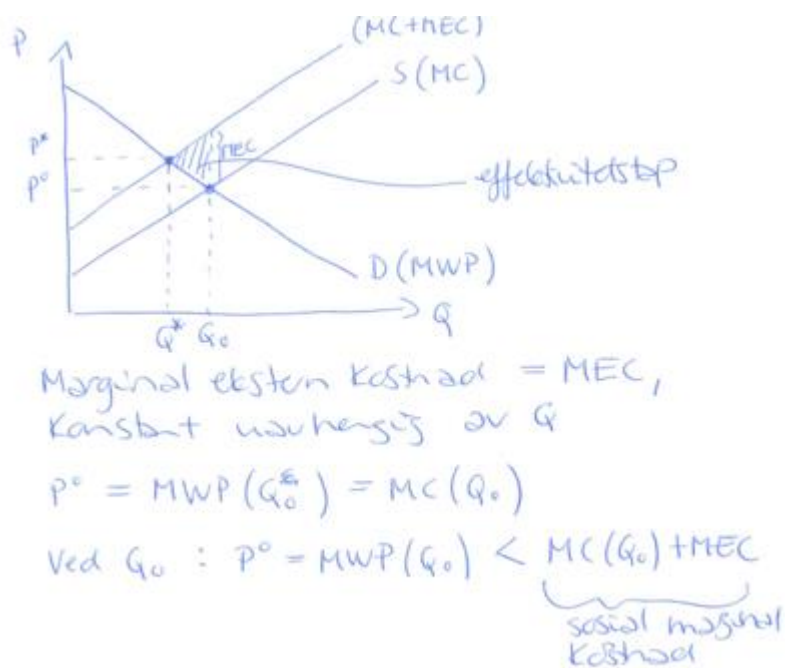 P
(MC+MEC)
S(MC)
P*
MEC
P⁰
effektivitetstap
D(MWP)
Q
Q* Q₀
Marginal ekstern kostnad = MEC,
Konstant uavhengig av Q
P⁰ = MWP(Q₀) = MC(Q₀)
Ved Q₀ : P⁰ = MWP(Q₀) < MC(Q₀)+MEC
sosial marginal
kostnad